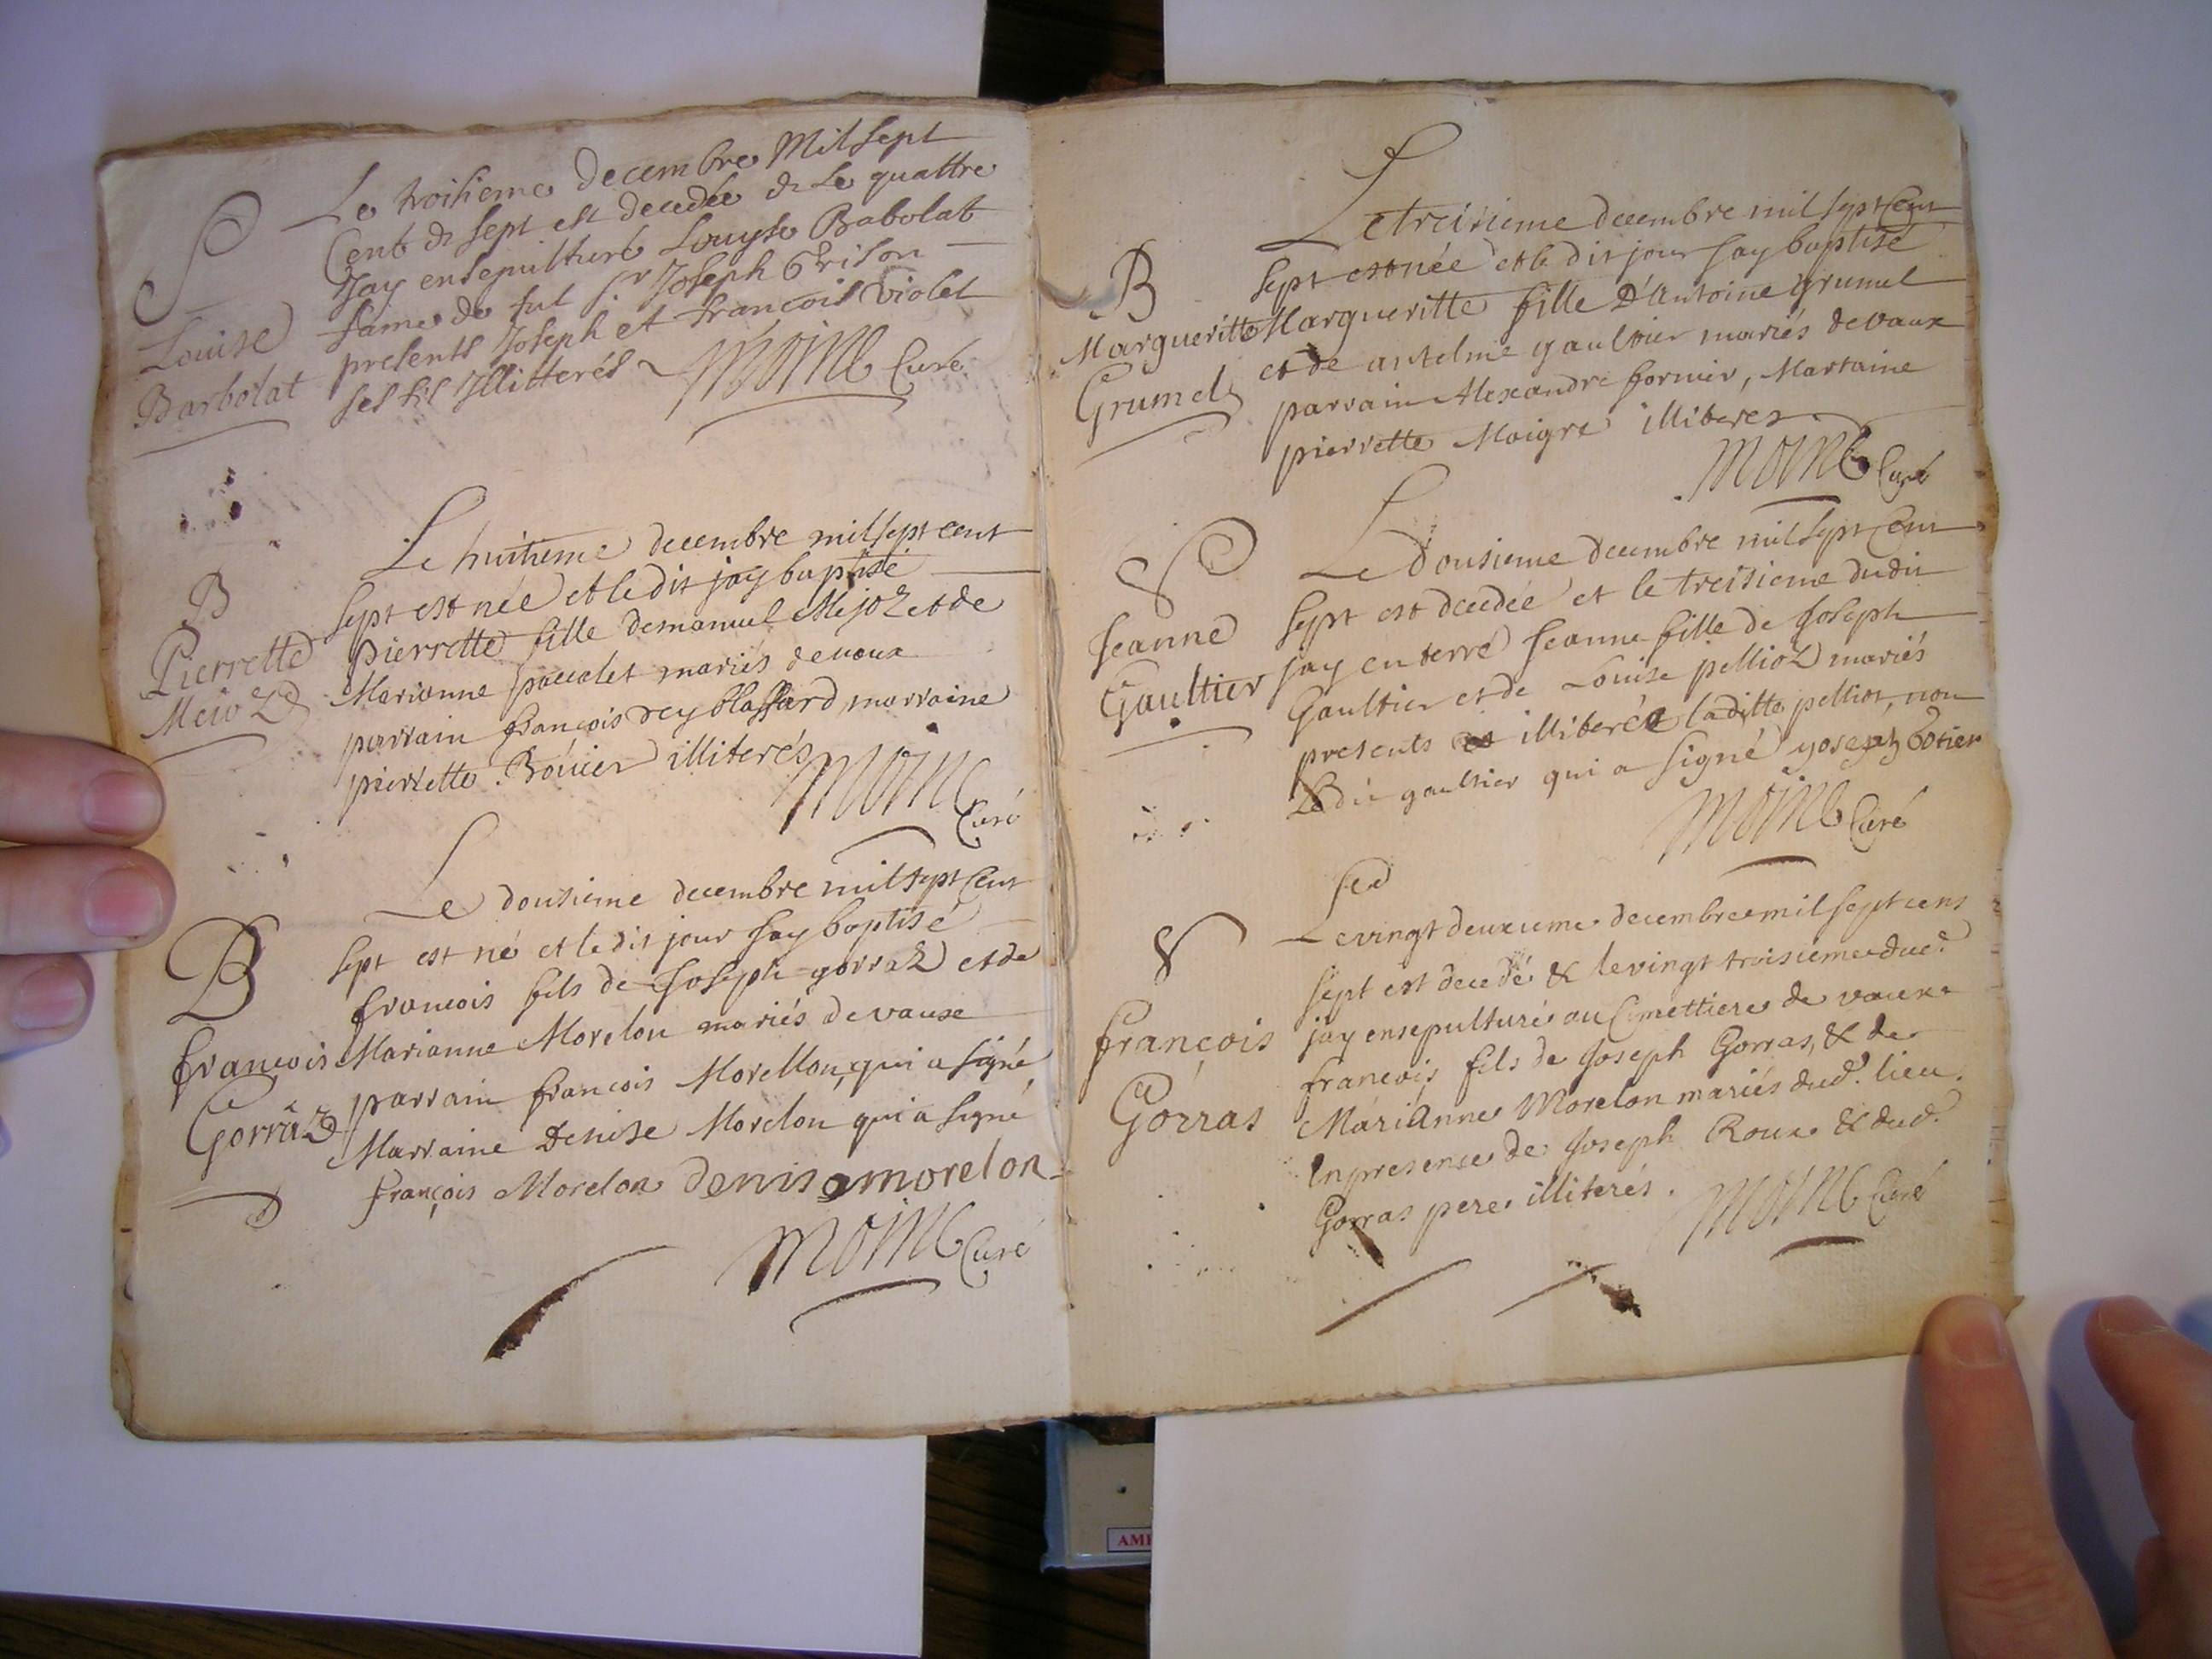 S
Louise
Barbolat
Le troisieme decembre Mil sept
Cent & sept est decedée & le quattre
Jay ensepulturé Louyse Babolat
fame de fut sr Joseph Grison
presents Joseph et francois Violet
ses fis Jllitterés Moine Curé
B
Pierrette
Mejoz
Le huitieme decembre mil sept cent
sept est née et le dit jay baptisé
pierrette fille demanuel Mejoz et de
Marianne paccalet mariés de vaux
parrain françois rey blassard marraine
pierrette Bouier illiterés
Moine
Curé
B
francois
Gorraz
Le dousieme decembre mil sept Cent
sept est né et le dit jour Jay baptisé
francois fils de Joseph gorraz et de
Marianne Morelon mariés de vaux
parrain francois Morellon, qui a signé
Marraine Denise Morelon qui a signé
françois Morelon denise morelon
Moine Curé
B
Margueritte
Grumel
Le treisieme decembre mil sept Cent
sept est née et le dit jour Jay baptisé
Margueritte fille D'Antoine grumel
et de antelme gaultier mariés de vaux
parrain Alexandre fornier, Martaine
pierrette Maigre illiteres
Moine Curé
S
Jeanne
Gaultier
Le dousieme decembre mil sept Cent
sept est decedée et le treisieme dudit
jay enterré Jeanne fille de Joseph
Gaultier et de Louise pellioz mariés
presents illiteréz laditte pelliot, non
Ledit gaultier qui a signé yoseph Gotier
Moine Curé
S
françois
Gorras
Le vingt deuxieme decembre mil sept cens
sept est decedé & le vingt troisieme dud.
jay ensepulturé au Cimettiere de vaux
francois fils de Joseph Gorras, & de
MariAnne Morelon mariés dud. lieu.
En presense de Joseph Roux & dud.
Gorras pere illiterés.
Moine Curé
AMI